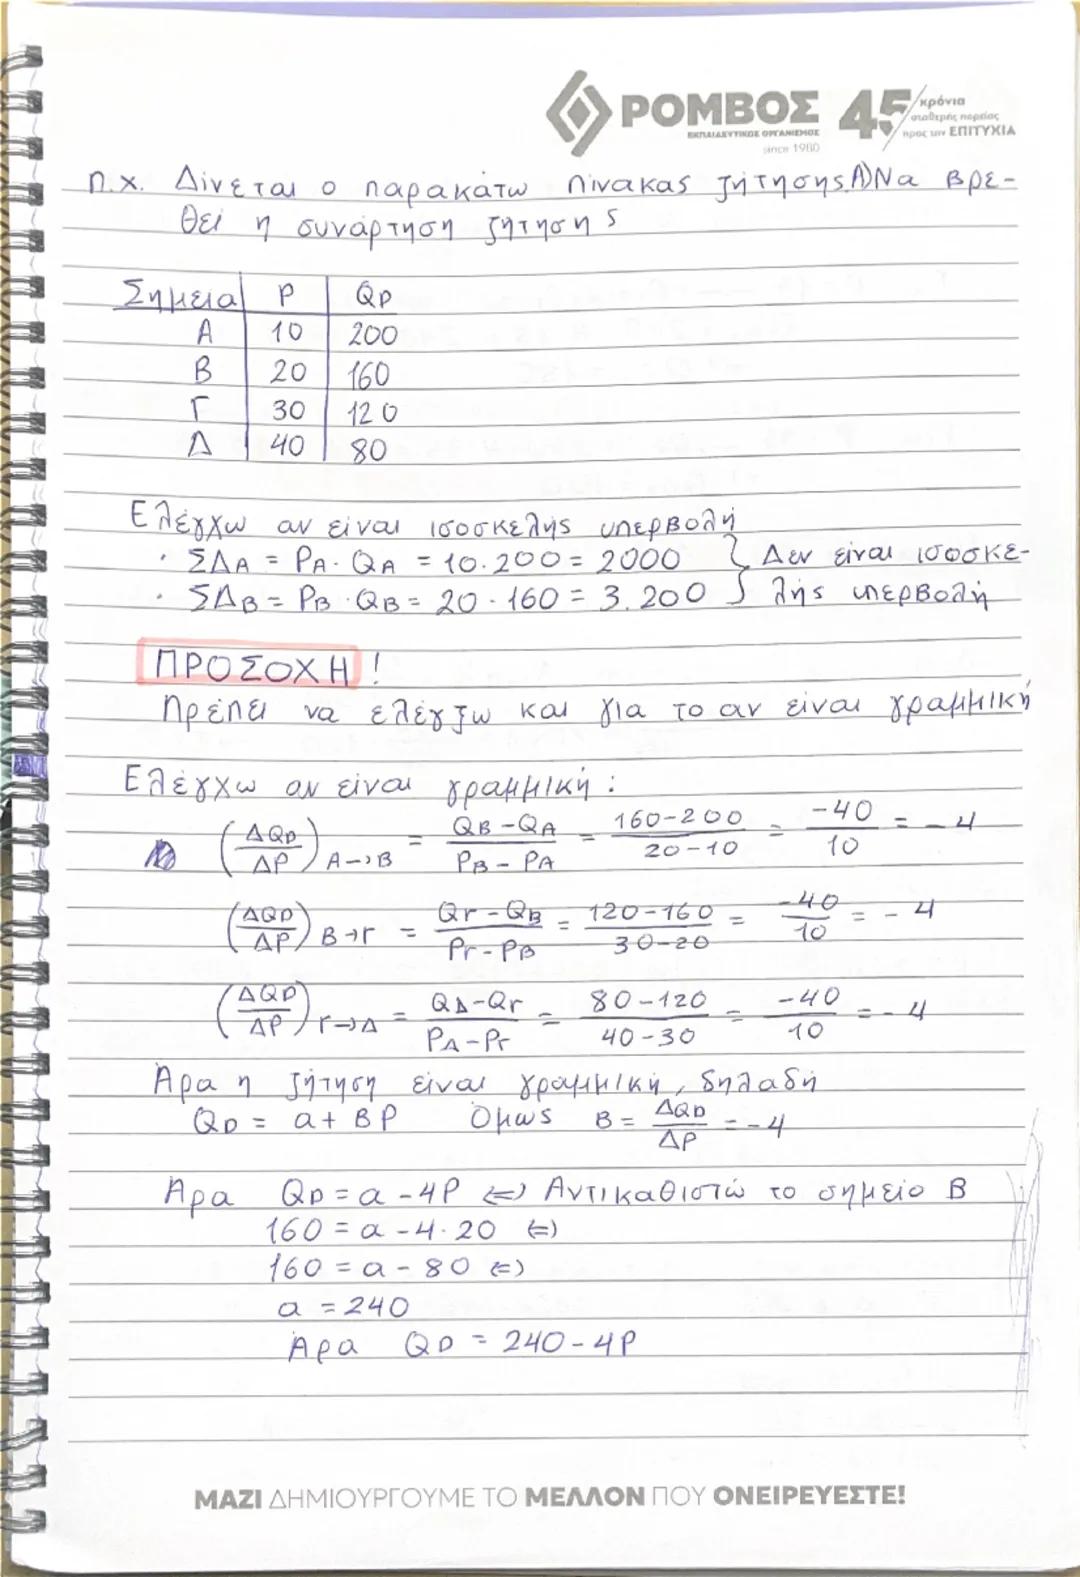 ΡΟΜΒΟΣ 45 χρόνια σταθερής πορείας προς την ΕΠΙΤΥΧΙΑ
ΕΚΠΑΙΔΕΥΤΙΚΟΣ ΟΡΓΑΝΙΣΜΟΣ
since 1980
π.χ. Δίνεται ο παρακάτω πίνακας ζήτησης. Α) Να βρε-
θεί η συνάρτηση ζήτησης
Σημεία P QD
Α 10 200
Β 20 160
Γ 30 120
Δ 40 80
Ελέγχω αν είναι ισοσκελής υπερβολή
· ΣΔΑ = PA · QA = 10 · 200 = 2000 } Δεν είναι ισοσκε-
· ΣΔΒ = PB · QB = 20 · 160 = 3.200 } λής υπερβολή
ΠΡΟΣΟΧΗ!
Πρέπει να ελέγξω και για το αν είναι γραμμική
Ελέγχω αν είναι γραμμική:
(ΔQD/ΔP) Α->Β = (QB-QA)/(PB-PA) = (160-200)/(20-10) = -40/10 = -4
(ΔQD/ΔP) Β→Γ = (QΓ-QB)/(PΓ-PB) = (120-160)/(30-20) = -40/10 = -4
(ΔQD/ΔP) Γ→Δ = (QΔ-QΓ)/(PΔ-PΓ) = (80-120)/(40-30) = -40/10 = -4
Άρα η ζήτηση είναι γραμμική, δηλαδή
QD = α + βP Όμως β = ΔQD/ΔP = -4
Άρα QD = α - 4P (=) Αντικαθιστώ το σημείο Β
160 = α - 4 · 20 (=)
160 = α - 80 (=)
α = 240
Άρα QD = 240 - 4P
ΜΑΖΙ ΔΗΜΙΟΥΡΓΟΥΜΕ ΤΟ ΜΕΛΛΟΝ ΠΟΥ ΟΝΕΙΡΕΥΕΣΤΕ!